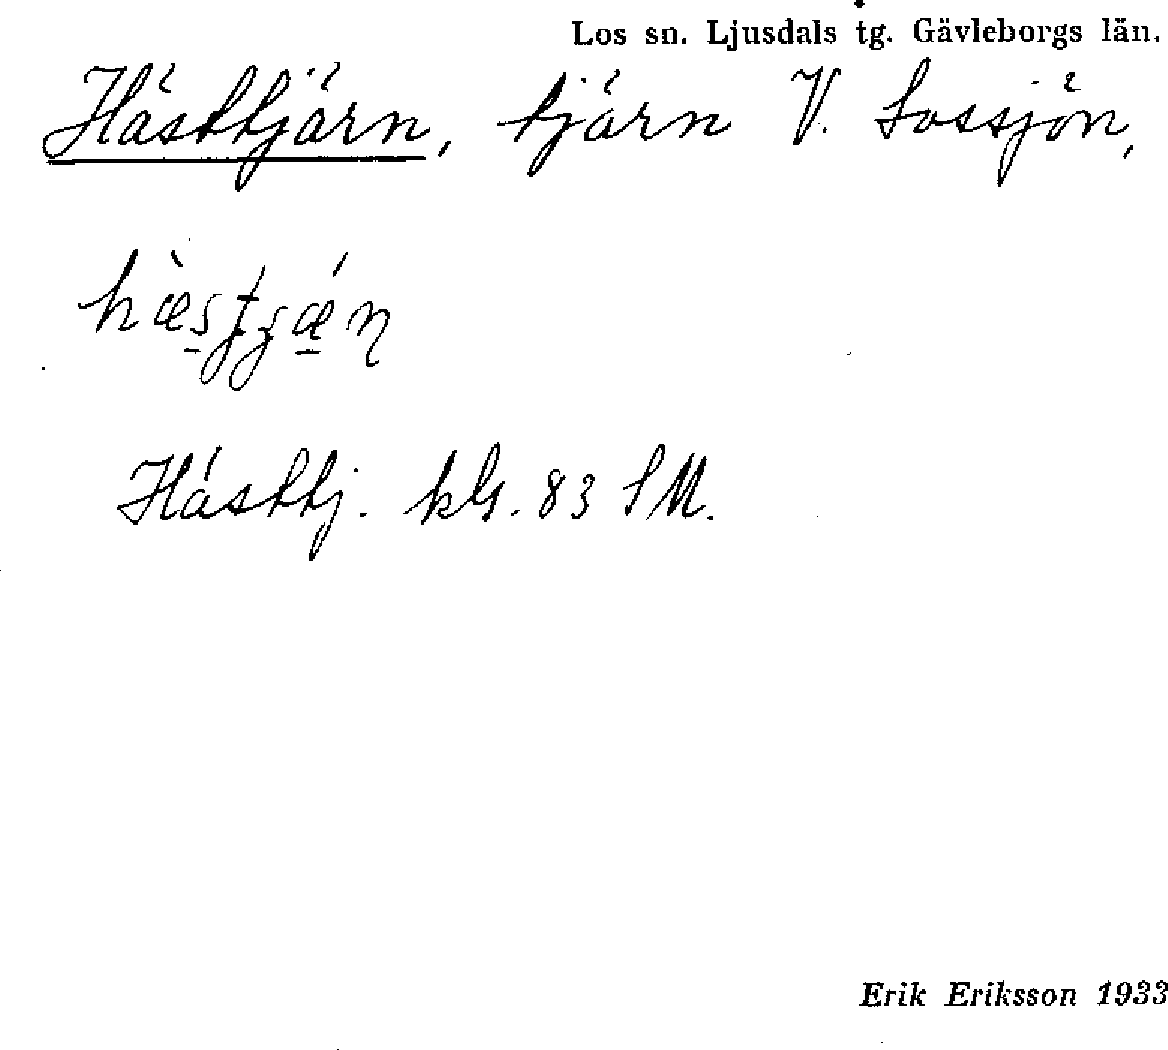 Los sn. Ljusdals tg. Gävleborgs län.
Hästtjärn, tjärn V. Lossjön,
Hästtj. kbl. 83 SM.
Erik Eriksson 1933